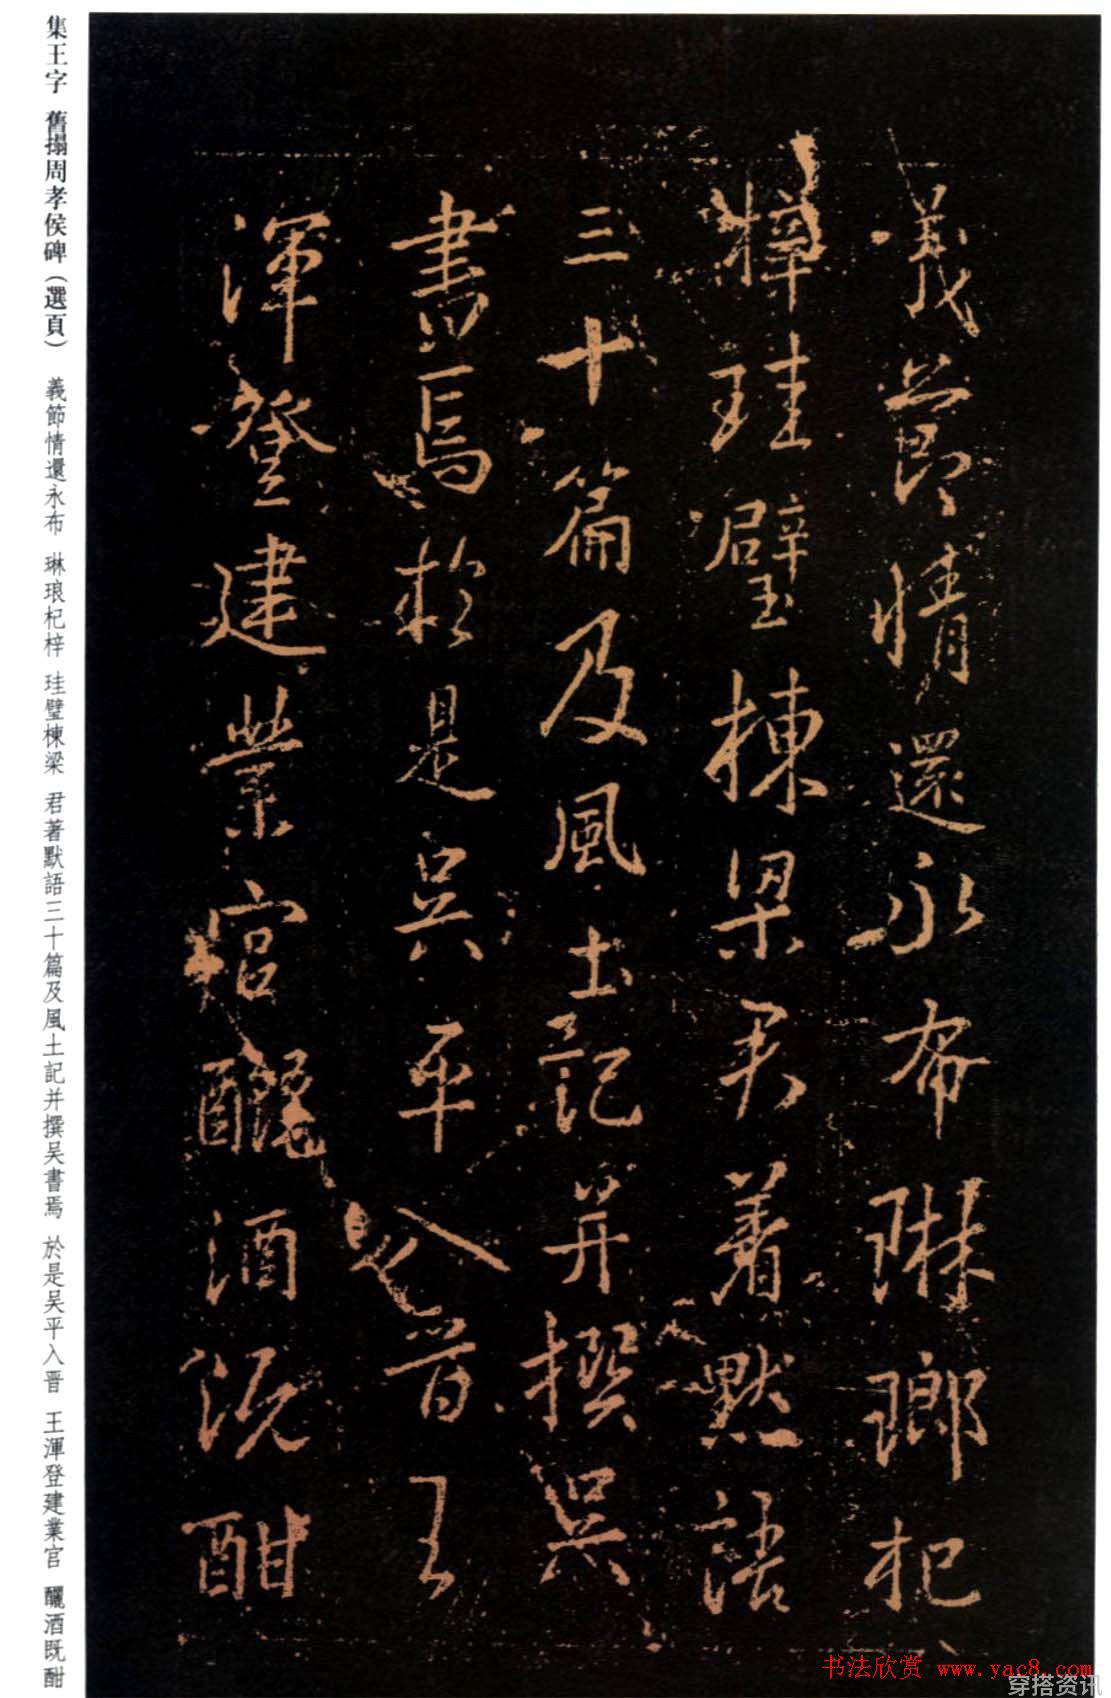 義節情還永布琳瑯杞
梓珪璧棟梁君著默語
三十篇及風土記并撰吳
書焉於是吳平入晉王
渾登建業官釃酒既酣
集王字 舊搨周孝侯碑（選頁） 義節情還永布 琳琅杞梓 珪璧棟梁 君著默語三十篇及風土記并撰吴書焉 於是吴平入晋 王渾登建業官 釃酒既酣
书法欣赏 www.yac8.com
穿搭资讯